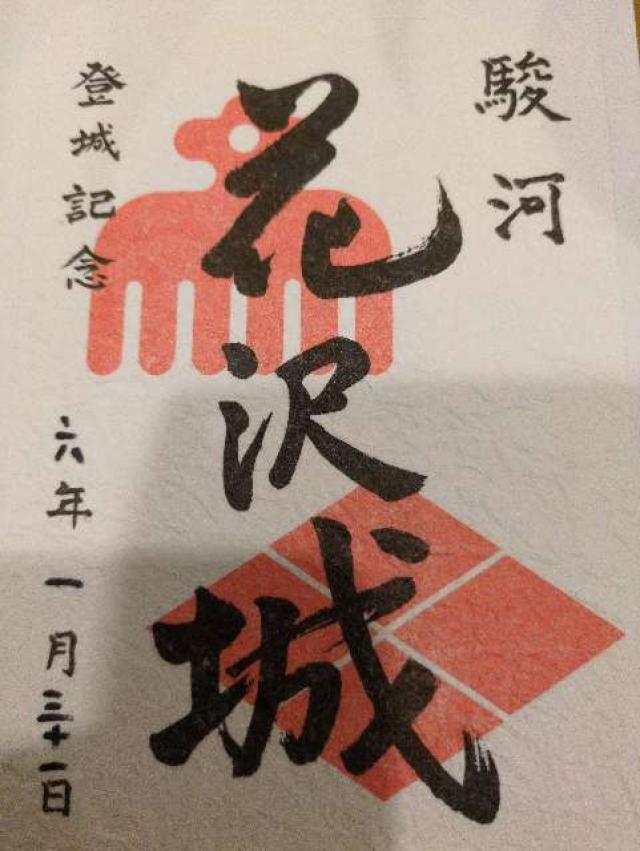 駿河
花沢城
登城記念
六年一月三十一日